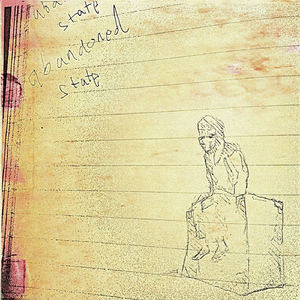 aba
state
abandoned
state